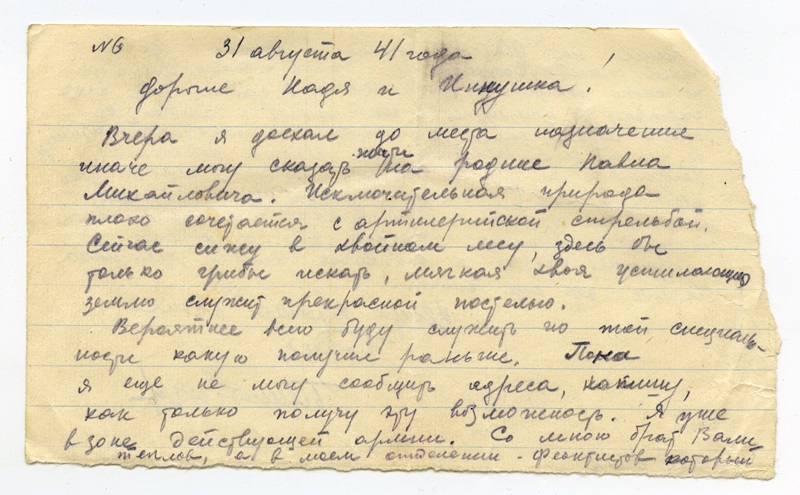 №6 31 августа 41 года
Дорогие Надя и Иннушка!
Вчера я доехал до места назначения
иначе могу сказать почти на родине Павла
Михайловича. Исключительная природа
плохо сочетается с артиллерийской стрельбой.
Сейчас сижу в хвойном лесу, здесь бы
только грибы искать, мягкая хвоя устилающая
землю служит прекрасной постелью.
Вероятнее всего буду служить по той специаль-
ности какую получил раньше. Пока
я еще не могу сообщить адреса, напишу,
как только получу эту возможность. Я уже
в зоне действующей армии. Со мною брат Вали
Теплов, а в моем отделении - Феоктистов который